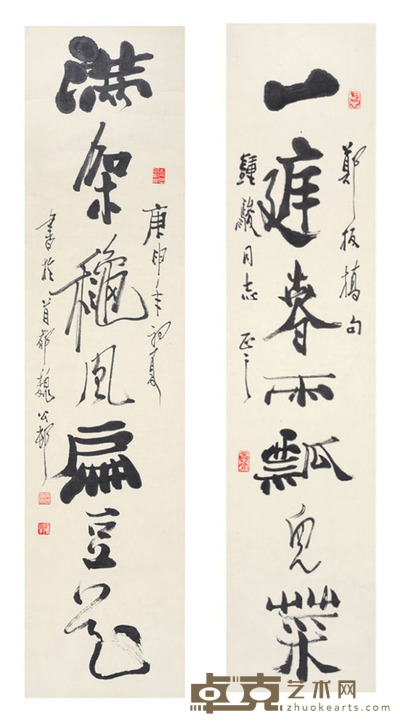 一庭春雨瓢兒菜
鄭板橋句
鍾駿同志正之
滿架穐風扁豆花
庚申年初夏
書於首都魏公邨
卓克艺术网
www.zhuokearts.com